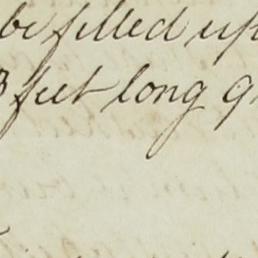 be filled up
3 feet long